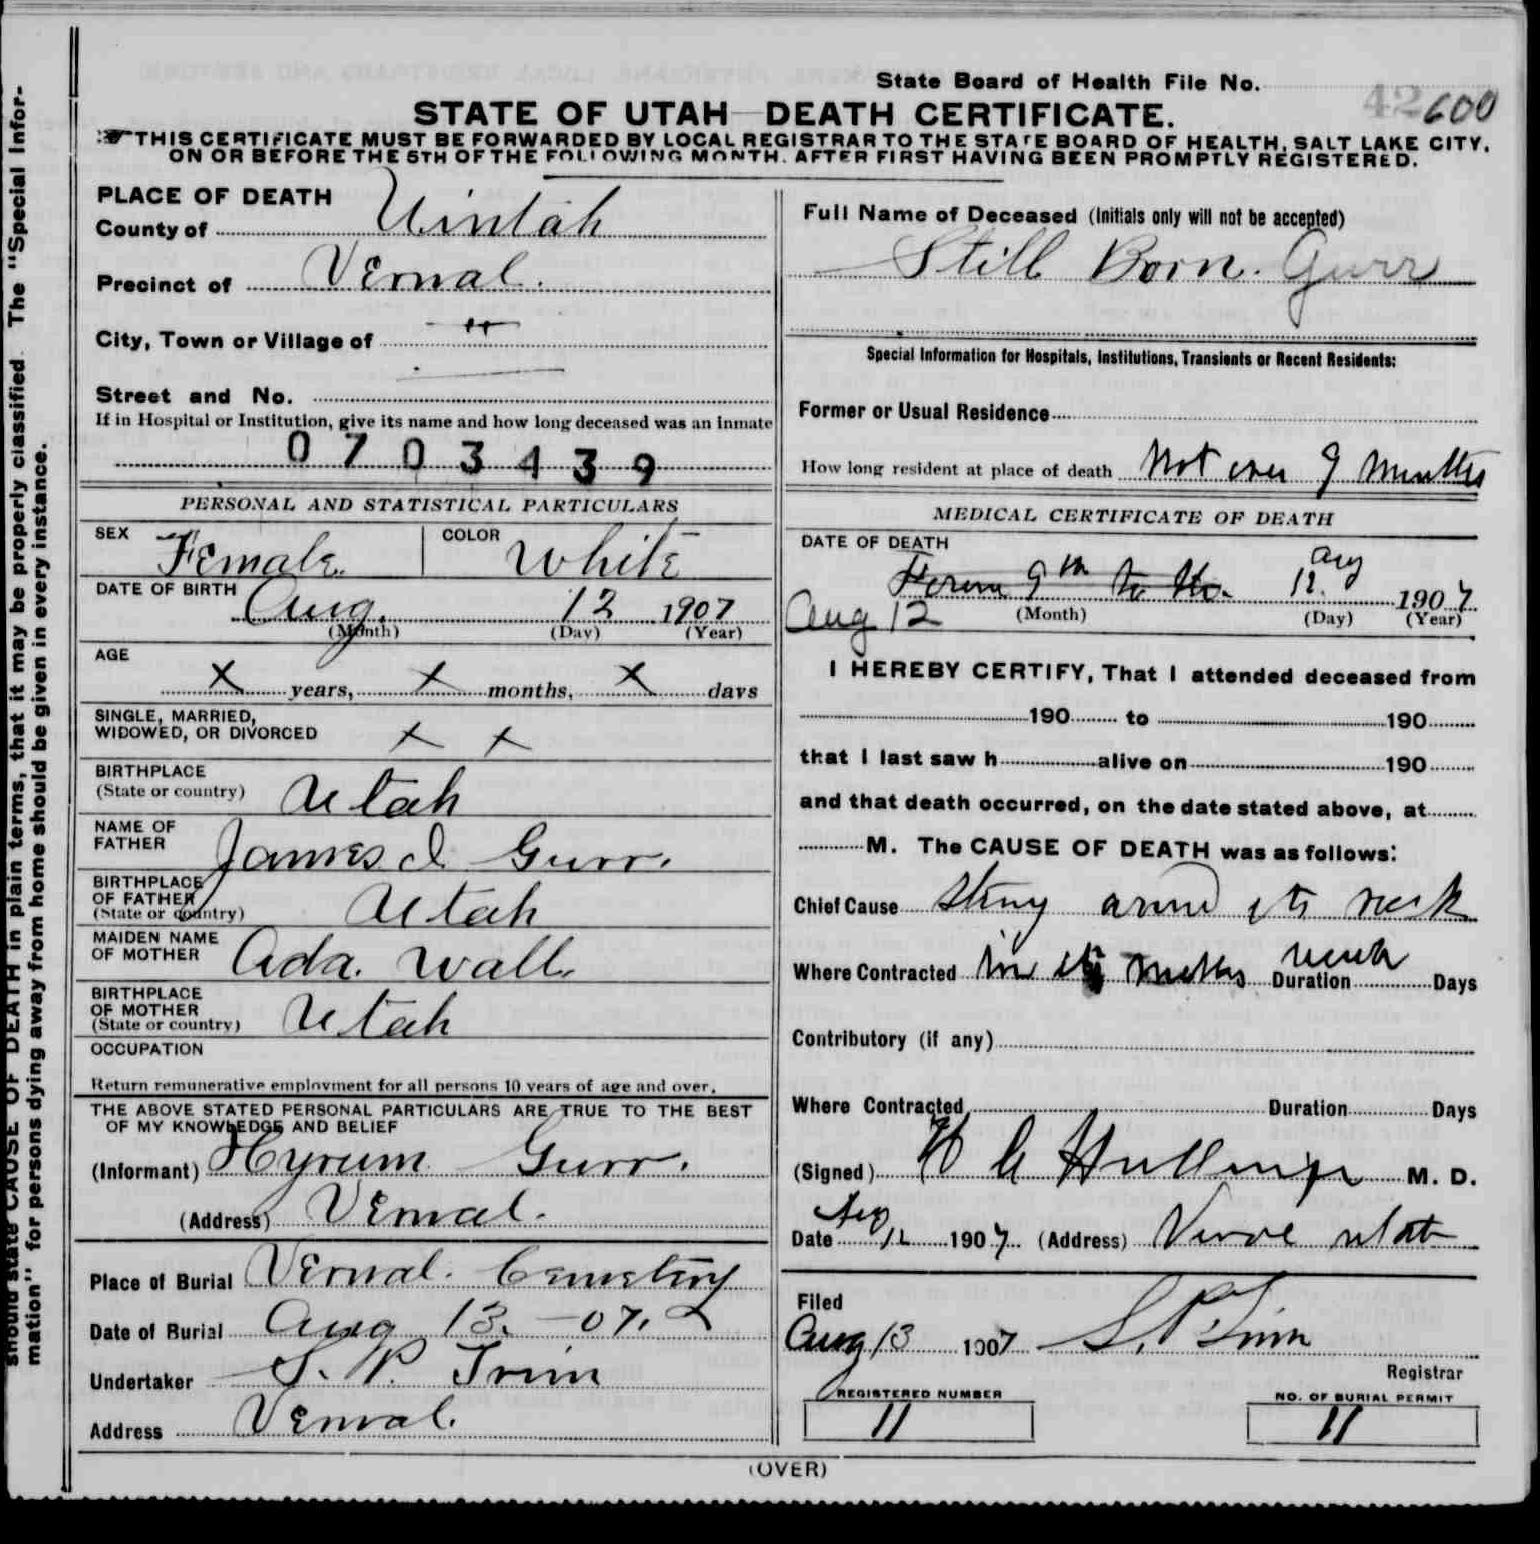 State Board of Health File No. 42600
STATE OF UTAH—DEATH CERTIFICATE.
THIS CERTIFICATE MUST BE FORWARDED BY LOCAL REGISTRAR TO THE STATE BOARD OF HEALTH, SALT LAKE CITY,
ON OR BEFORE THE 5TH OF THE FOLLOWING MONTH, AFTER FIRST HAVING BEEN PROMPTLY REGISTERED.
should state CAUSE OF DEATH in plain terms, that it may be properly classified. The "Special Infor-
mation" for persons dying away from home should be given in every instance.
PLACE OF DEATH
County of Uintah
Precinct of Vernal.
City, Town or Village of "
Street and No.
If in Hospital or Institution, give its name and how long deceased was an inmate
0703439
PERSONAL AND STATISTICAL PARTICULARS
SEX Female. COLOR White
DATE OF BIRTH Aug. 12 1907
(Month) (Day) (Year)
AGE
X years, X months, X days
SINGLE, MARRIED,
WIDOWED, OR DIVORCED X X
BIRTHPLACE
(State or country) Utah
NAME OF
FATHER James I Gurr.
BIRTHPLACE
OF FATHER
(State or country) Utah
MAIDEN NAME
OF MOTHER Ada. Wall.
BIRTHPLACE
OF MOTHER
(State or country) Utah
OCCUPATION
Return remunerative employment for all persons 10 years of age and over.
THE ABOVE STATED PERSONAL PARTICULARS ARE TRUE TO THE BEST
OF MY KNOWLEDGE AND BELIEF
(Informant) Hyrum Gurr.
(Address) Vernal.
Place of Burial Vernal. Cemetery
Date of Burial Aug 13. - 07.
Undertaker S. P. Trim
Address Vernal.
Full Name of Deceased (Initials only will not be accepted)
Still Born. Gurr
Special Information for Hospitals, Institutions, Transients or Recent Residents:
Former or Usual Residence
How long resident at place of death Not over 9 months
MEDICAL CERTIFICATE OF DEATH
DATE OF DEATH
From 9th to the 12. Aug 1907
Aug 12 (Month) (Day) (Year)
I HEREBY CERTIFY, That I attended deceased from
190 to 190
that I last saw h alive on 190
and that death occurred, on the date stated above, at
M. The CAUSE OF DEATH was as follows:
Chief Cause string around its neck
Where Contracted in its mothers Duration Days
Contributory (if any)
Where Contracted Duration Days
(Signed) M. D.
Date 12 1907 (Address)
Filed
Aug 13 1907 S. P. Trim
Registrar
REGISTERED NUMBER
11
NO. OF BURIAL PERMIT
11
(OVER)